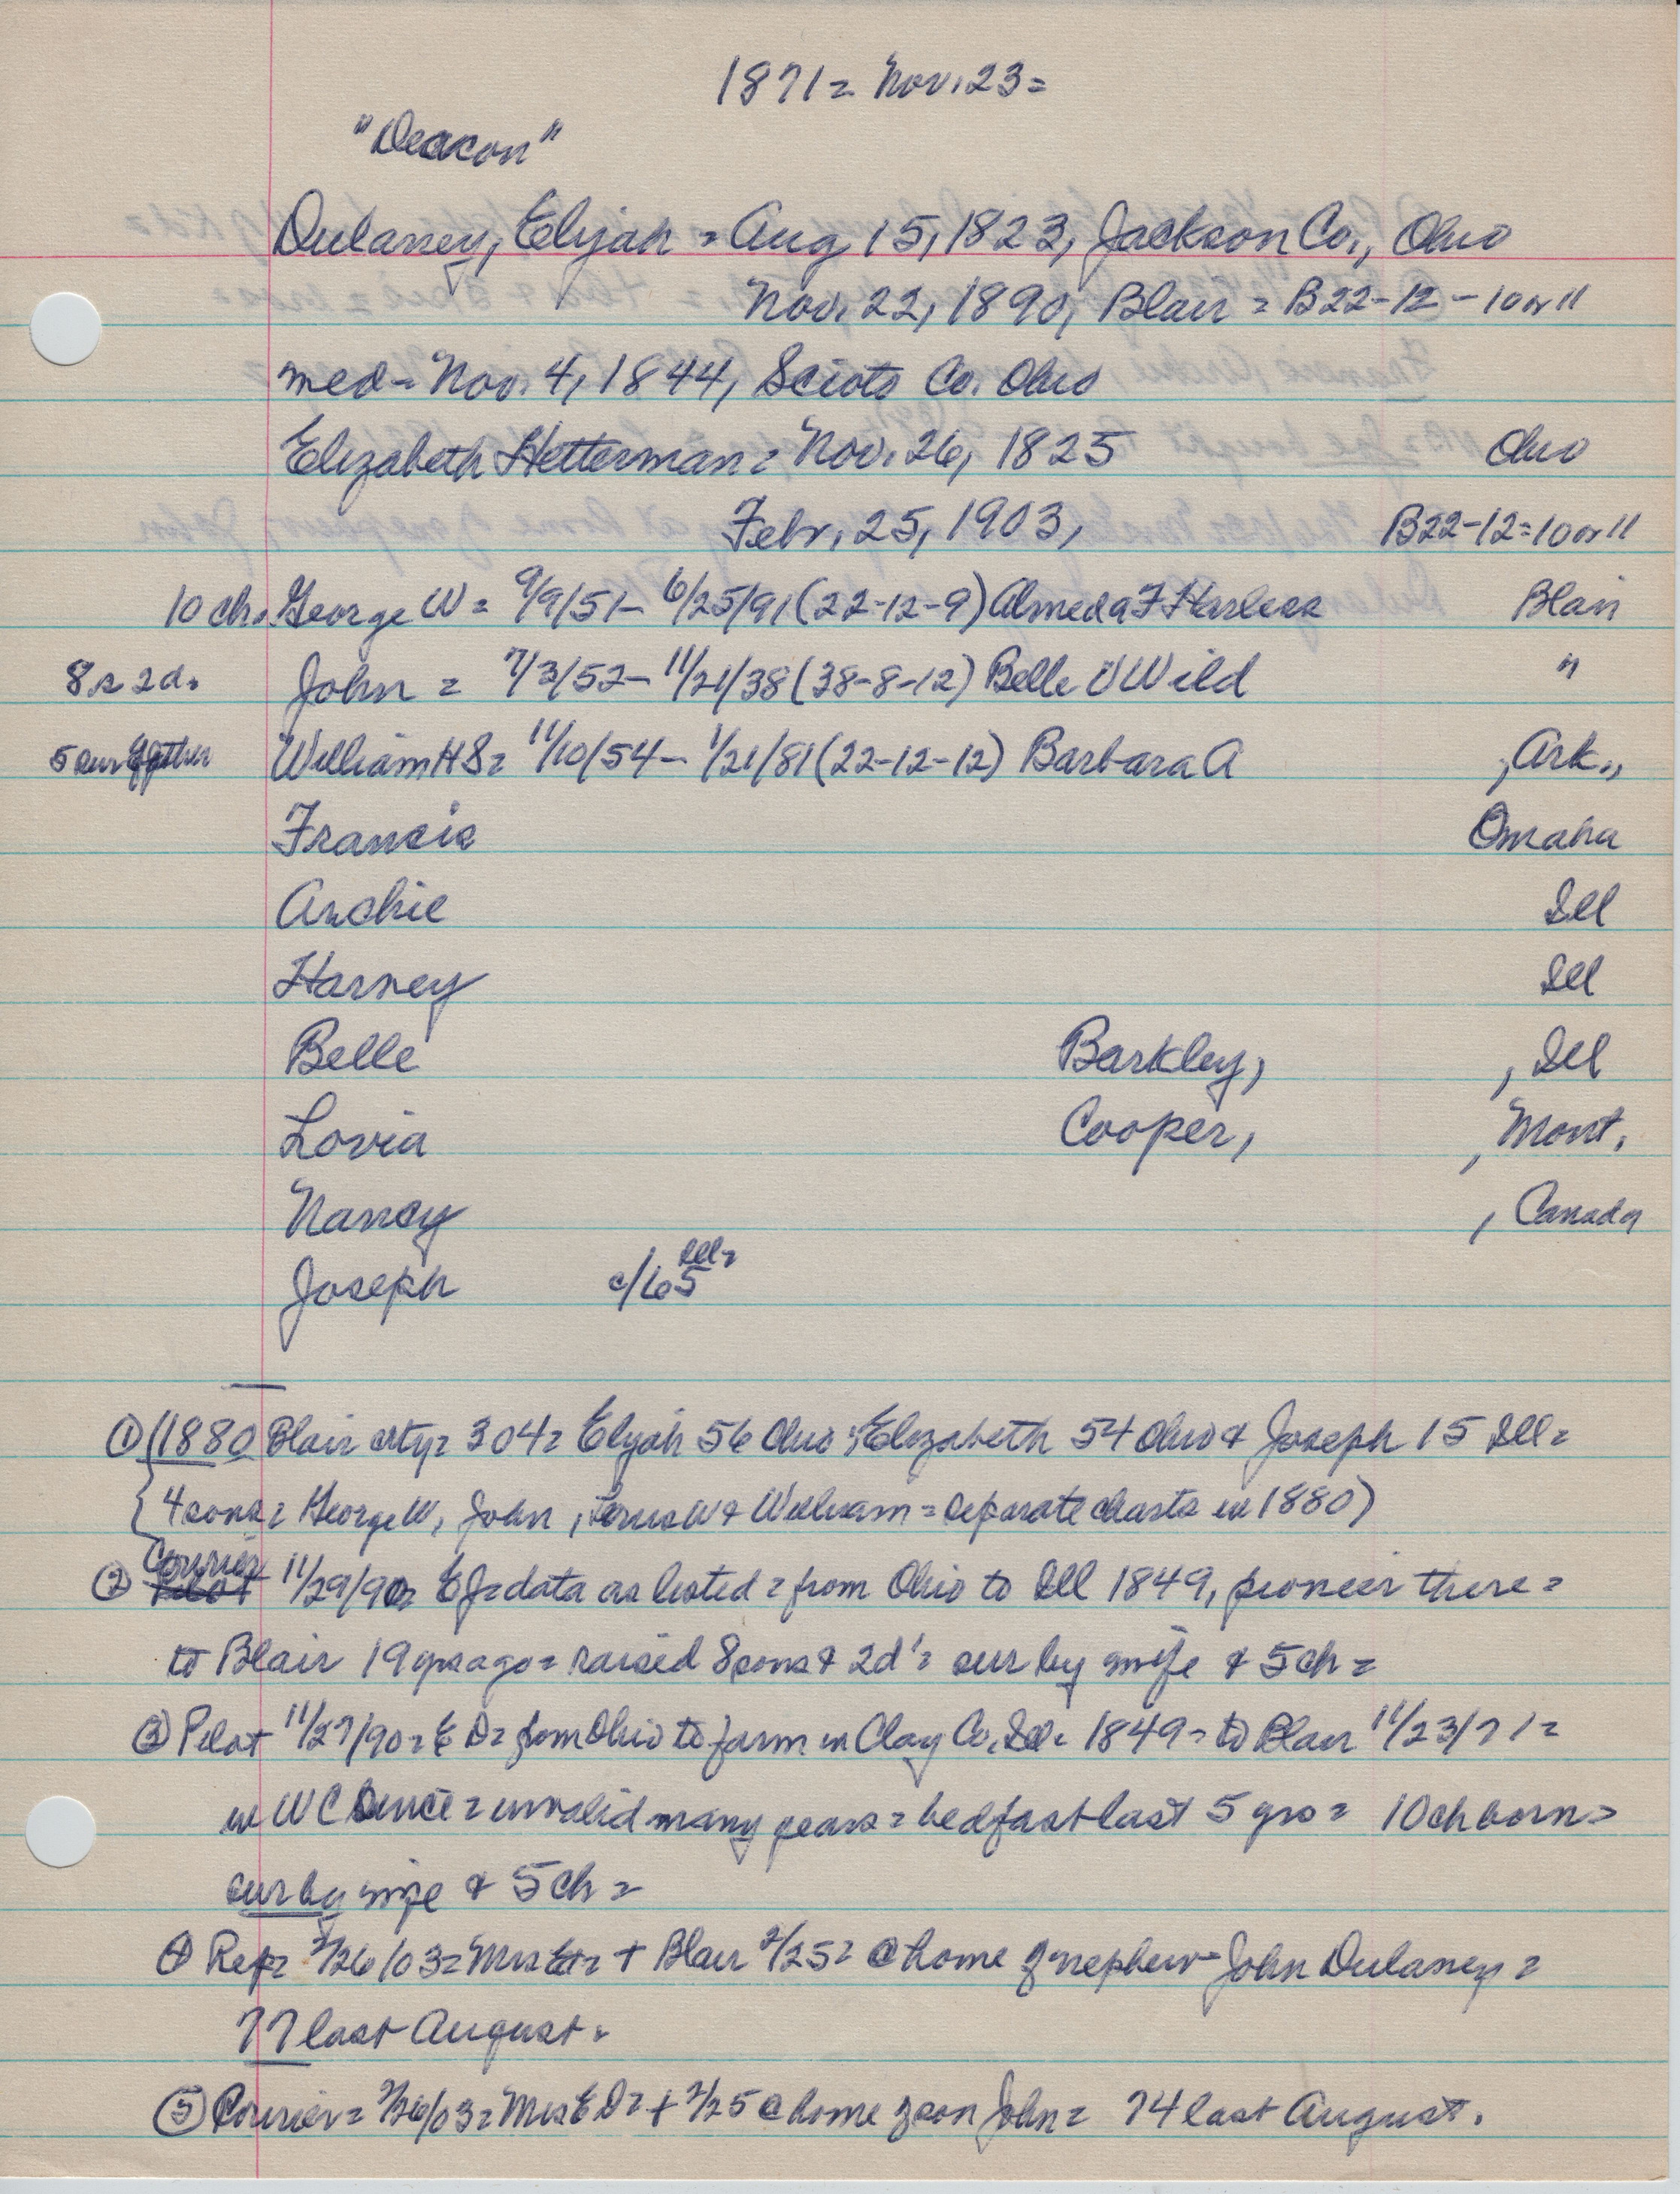 1871 = Nov. 23 =
"Deacon"
Dulaney, Elijah = Aug 15, 1823, Jackson Co., Ohio
Nov. 22, 1890, Blair = B22-12-10 or 11
med = Nov. 4, 1844, Scioto Co. Ohio
Elizabeth Hetterman = Nov. 26, 1825 Ohio
Febr. 25, 1903, B22-12=10 or 11
10 ch. George W = 9/9/51- 6/25/91 (22-12-9) Almeda F Harless Blair
8 s 2 d. John = 7/3/52- 11/21/38 (38-8-12) Belle V Wild "
5 sur father William H S = 11/10/54- 1/21/81 (22-12-12) Barbara A , Ark.,
Francis Omaha
Archie Ill
Harvey Ill
Belle Barkley, , Ill
Lovia Cooper, , Mont.
Nancy , Canada
Joseph c/65 Ill=
① (1880 Blair city = 304 = Elijah 56 Ohio; Elizabeth 54 Ohio & Joseph 15 Ill =
4 sons = George W, John, & William = separate charts in 1880)
② Courier 11/29/90 = data as listed = from Ohio to Ill 1849, pioneer there =
to Blair 19 yrs ago = raised 8 sons & 2 d' = sur by wife & 5 ch =
③ Pilot 11/27/90 = E D = from Ohio to farm in Clay Co. Ill. 1849 = to Blair 11/23/71 =
in W C since = invalid many years = bedfast last 5 yrs = 10 ch born =
sur by wife & 5 ch =
④ Rep = 2/26/03 = Mrs + Blair 2/25 = @ home of nephew - John Dulaney =
77 last August.
⑤ Courier = 2/26/03 = Mrs E D = + 2/25 @ home of son John = 74 last August.